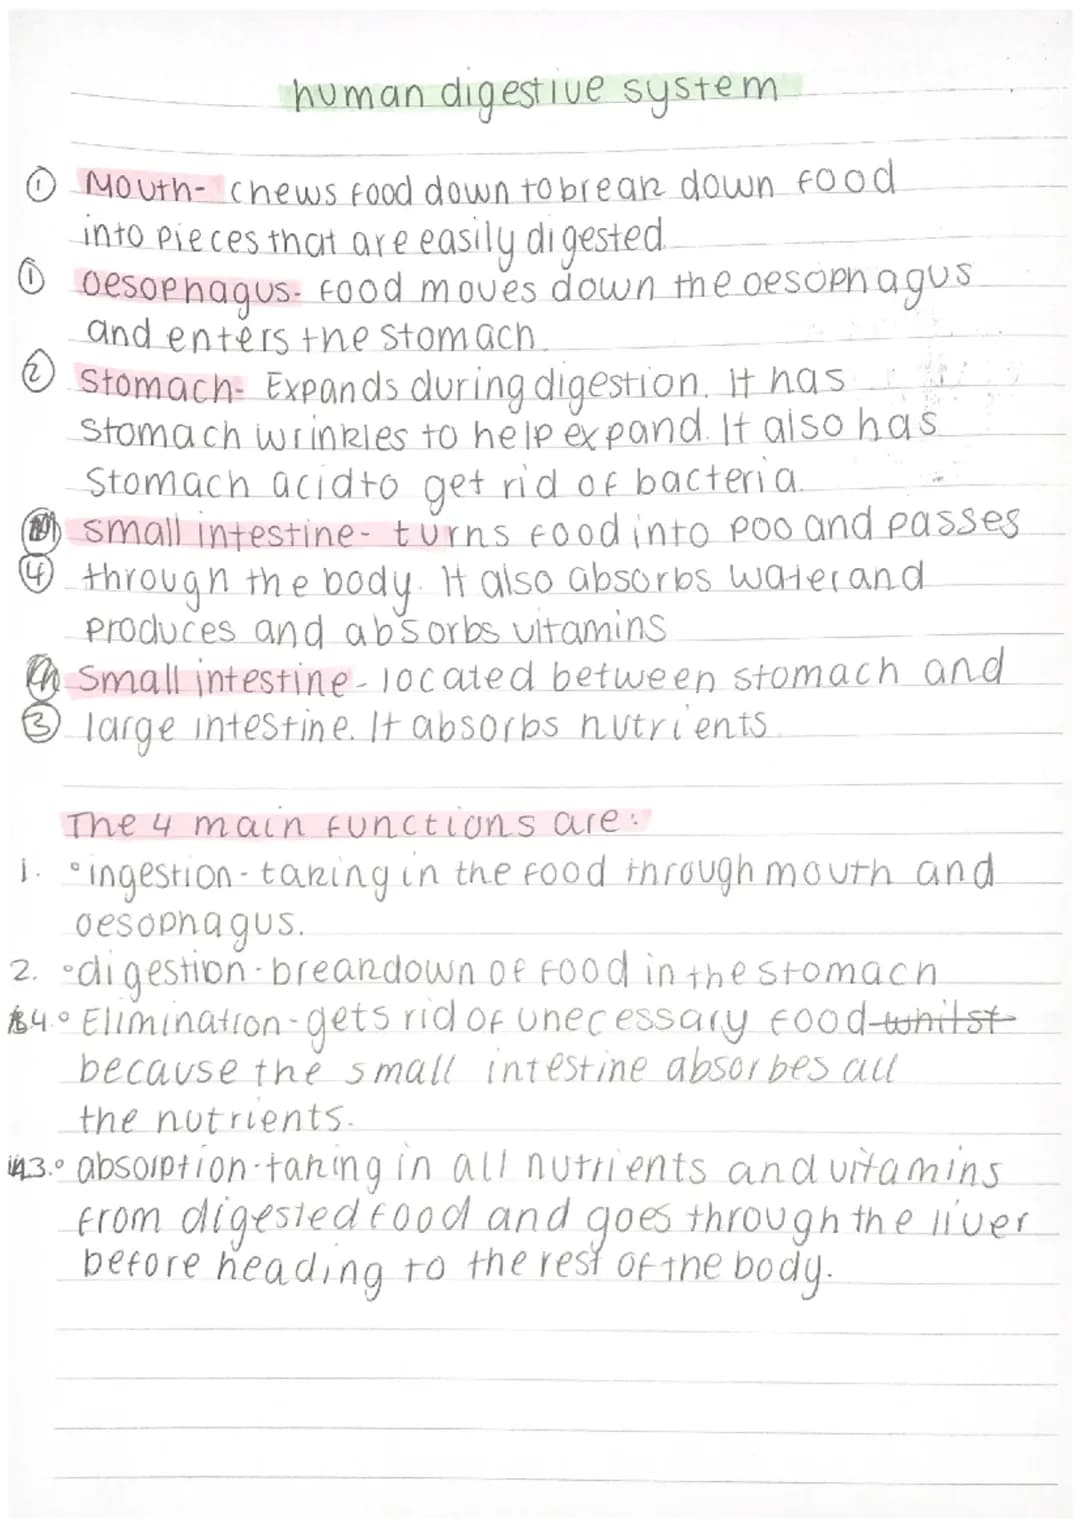 human digestive system
① Mouth- chews food down to break down food
into pieces that are easily digested.
① oesophagus- food moves down the oesophagus
and enters the stomach.
② Stomach- Expands during digestion. It has
stomach wrinkles to help expand. It also has
stomach acid to get rid of bacteria.
small intestine- turns food into poo and passes
④ through the body. It also absorbs water and
produces and absorbs vitamins
Small intestine- located between stomach and
③ large intestine. It absorbs nutrients
The 4 main functions are:
1. ° ingestion - taking in the food through mouth and
oesophagus.
2. ° digestion - breakdown of food in the stomach
4. ° Elimination - gets rid of unecessary food whilst
because the small intestine absorbes all
the nutrients.
3. ° absorption - taking in all nutrients and vitamins
from digested food and goes through the liver
before heading to the rest of the body.